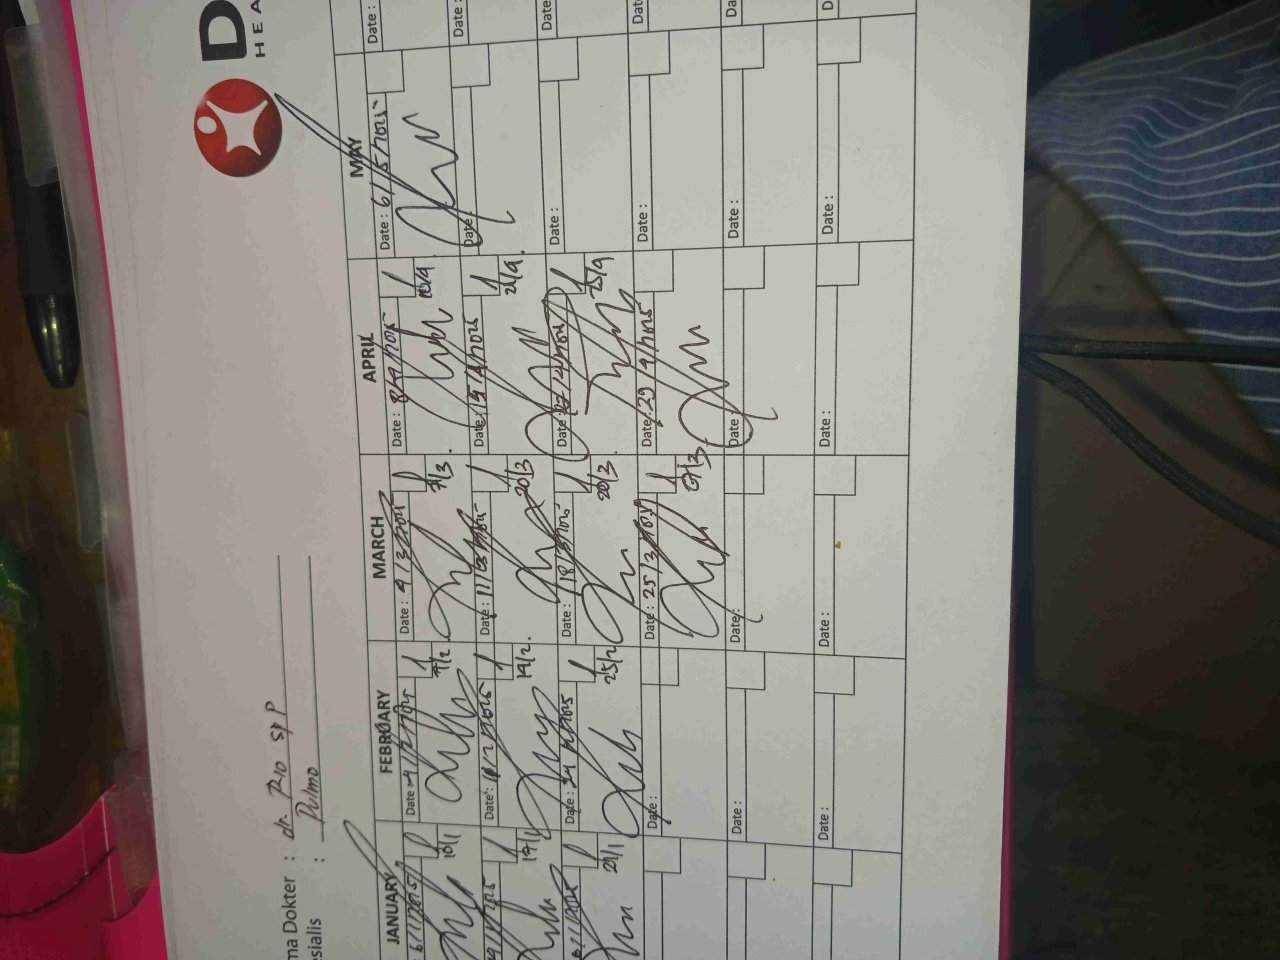 D
HEA
ma Dokter : dr. Rio SpP
esialis : Pulmo
JANUARY
FEBRUARY
MARCH
APRIL
MAY
6/1/2025
10/1
Date : 4/2/2025
7/2
Date : 4/3/2025
7/3.
Date : 8/4/2025
10/4
Date : 6/5/2025
Date :
17/1
Date : 11/2/2025
14/2.
Date : 11/3/2025
20/3
Date : 15/4/2025
24/4.
Date :
Date :
21/1
Date : 24/2/2025
25/2
Date : 18/3/2025
20/3
Date : 22/4/2025
25/4
Date :
Date :
Date :
Date : 25/3/2025
27/3
Date : 29/4/2025
Date :
Date :
Date :
Date :
Date :
Date :
Date :
Date :
Date :
Date :
Date :
Date :